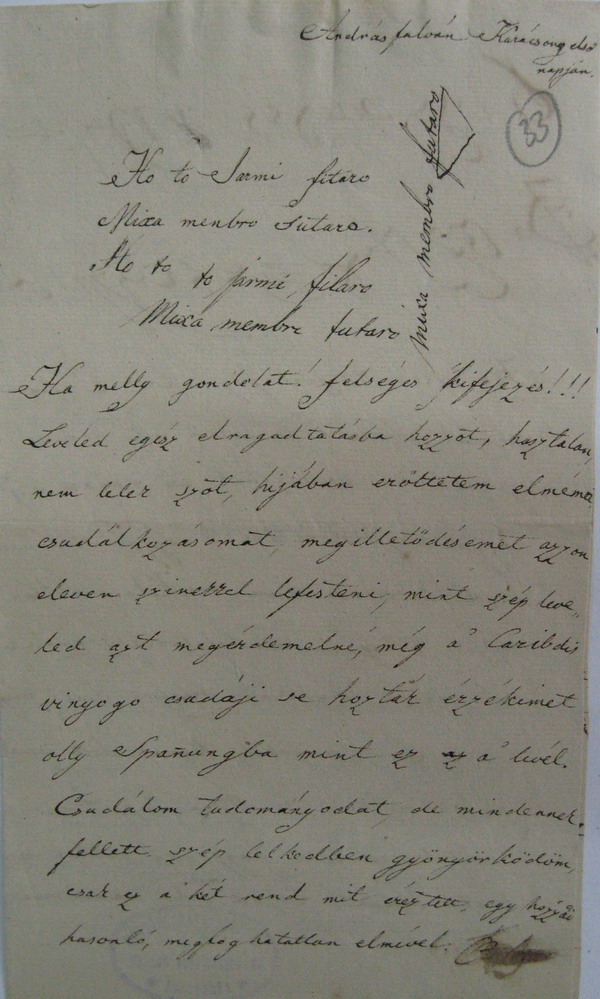 Andrásfalván Karácsony első
napján
33
Ho to Jarmi fitaro
Mixa menbro sutaro.
Ho to to jármi filaro
Mixa membre futaró
Mixa membro futaro
Ha melly gondolat! felséges kifejezés!!!
Leveled egész elragadtatásba hozzot, hasztalan,
nem lelek szót, hijában erőttetem elmémet
csudálkozásomat, megilletődésemet azzon
eleven szinekkel lefesteni, mint szép leve„
led azt megérdemelné, még a' Caribdis
vinyogo csudáji se hozták érzékimet
olly Spañungba mint ez a' levél.
Csudálom tudományodat, de mindennek
fellett szép lelkedben gyönyörködöm,
csak ez a' két rend mit éreztett egy hozzád
hasonló, megfoghatatlan elmével.